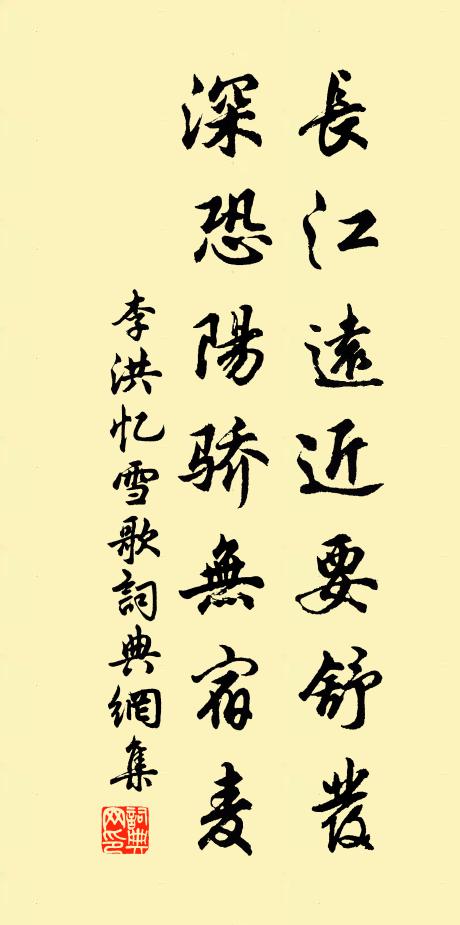 長江遠近要舒發
深恐陽骄無宿麦
李洪忆雪歌詞典網集
詞典网印